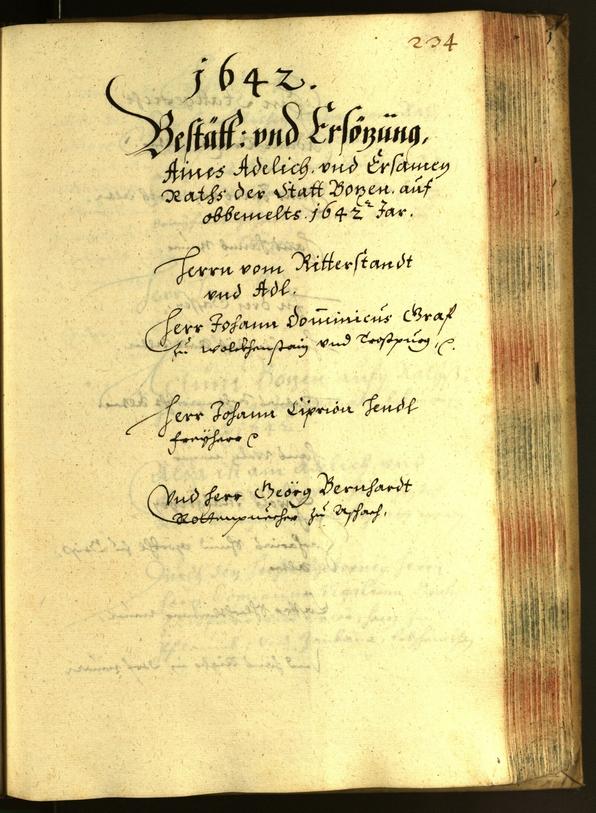 234
1642.
Bestätt: vnd Ersözung,
Aines Adelich. vnd Ersamen
Raths der Statt Bozen. auf
obbemelts. 1642 Jar.
Herrn vom Ritterstandt
vnd Adl.
Herr Johann Dominicus Graf
zu Wolckhenstain vnd Trostpurg,
Herr Johann Ciprion Fendl
freyherr
Vnd herr Geörg Bernhardt
zu Aschach,